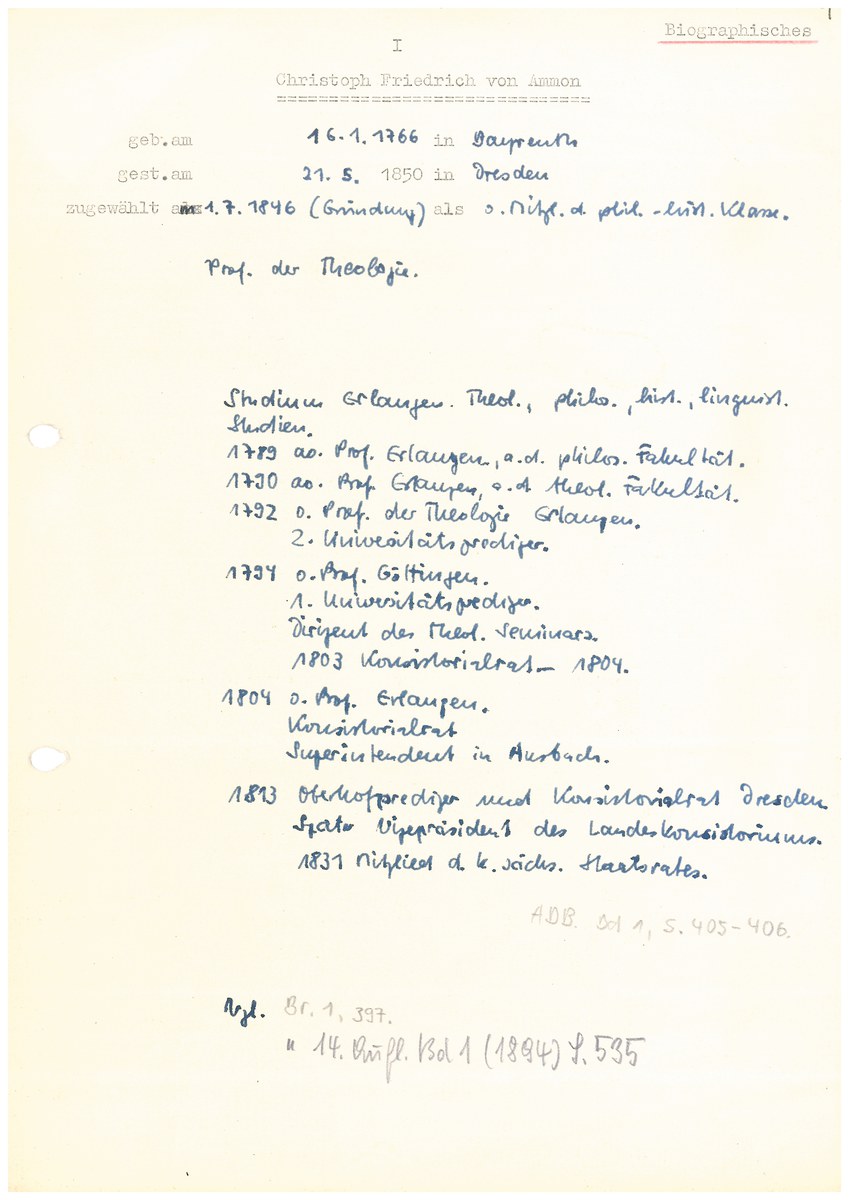 Biographisches
I
Christoph Friedrich von Ammon
==============================
geb.am 16.1.1766 in Bayreuth
gest.am 21. 5. 1850 in Dresden
zugewählt am 1.7.1846 (Gründung) als o. Mitgl. d. phil.-hist. Klasse.
Prof. der Theologie.
Studium Erlangen. Theol., philos., hist., linguist.
Studien.
1789 ao. Prof. Erlangen, a.d. philos. Fakultät.
1790 ao. Prof Erlangen, a.d theol. Fakultät.
1792 o. Prof. der Theologie Erlangen.
2. Universitätsprediger.
1794 o. Prof. Göttingen.
1. Universitätsprediger.
Dirigent des Theol. Seminars.
1803 Konsistorialrat – 1804.
1804 o. Prof. Erlangen.
Konsistorialrat
Superintendent in Ansbach.
1813 Oberhofprediger und Konsistorialrat Dresden
Später Vizepräsident des Landeskonsistoriums.
1831 Mitglied d. k. sächs. Staatsrates.
ADB. Bd 1, S. 405-406.
Vgl. Br. 1, 397.
" 14. Aufl. Bd 1 (1894) S. 535